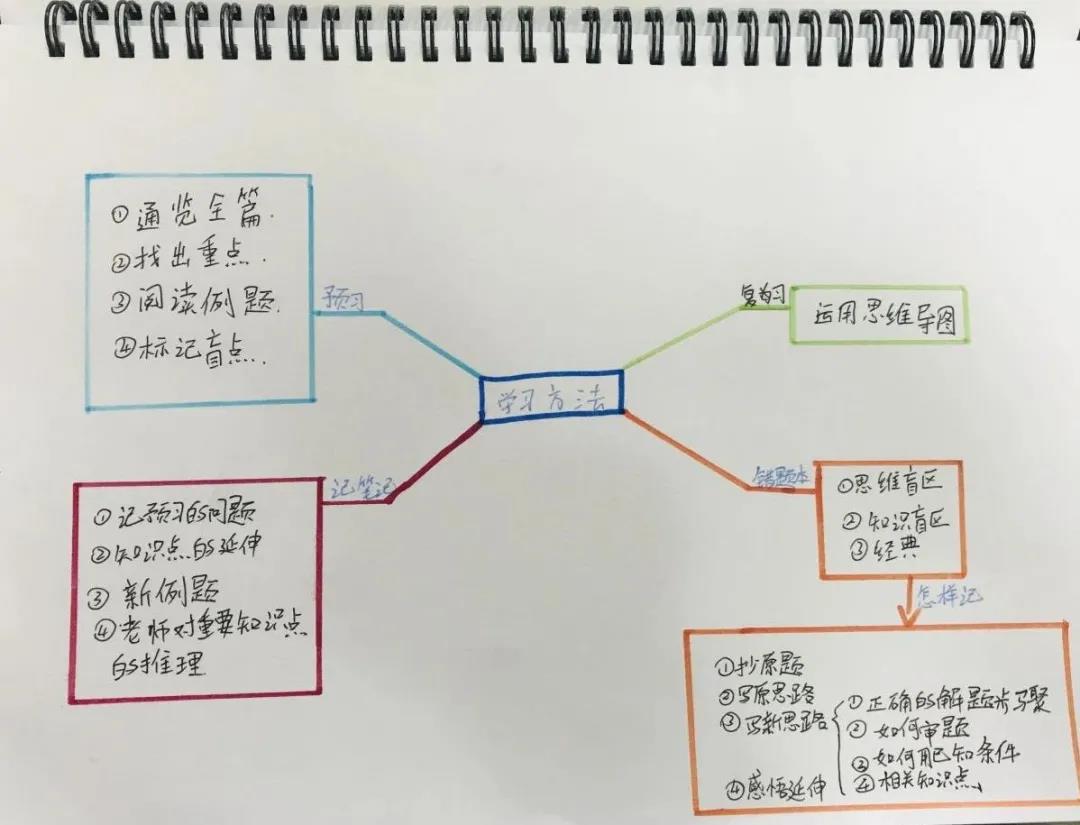 学习方法
预习
①通览全篇.
②找出重点.
③阅读例题.
④标记盲点.
记笔记
①记预习的问题
②知识点的延伸
③新例题
④老师对重要知识点
的推理
复习
运用思维导图
错题本
①思维盲区
②知识盲区
③经典
怎样记
①抄原题
②写原思路
③写新思路
①正确的解题步骤
②如何审题
③如何用已知条件
④相关知识点
④感悟延伸